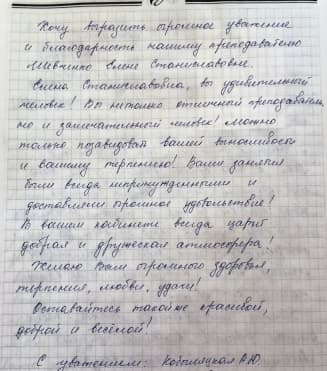 Хочу выразить огромное уважение
и благодарность нашему преподавателю
Шевченко Елене Станиславовне.
Елена Станиславовна, вы удивительный
человек! Вы не только отличный преподаватель,
но и замечательный человек! Можно
только позавидовать вашей выносливости
и вашему терпению! Ваши занятия
были всегда непринужденными и
доставляли огромное удовольствие!
В вашем кабинете всегда царит
добрая и дружеская атмосфера!
Желаю Вам огромного здоровья,
терпения, любви, удачи!
Оставайтесь такой же красивой,
доброй и весёлой!
С уважением: Кобыляцкая А.Ю.